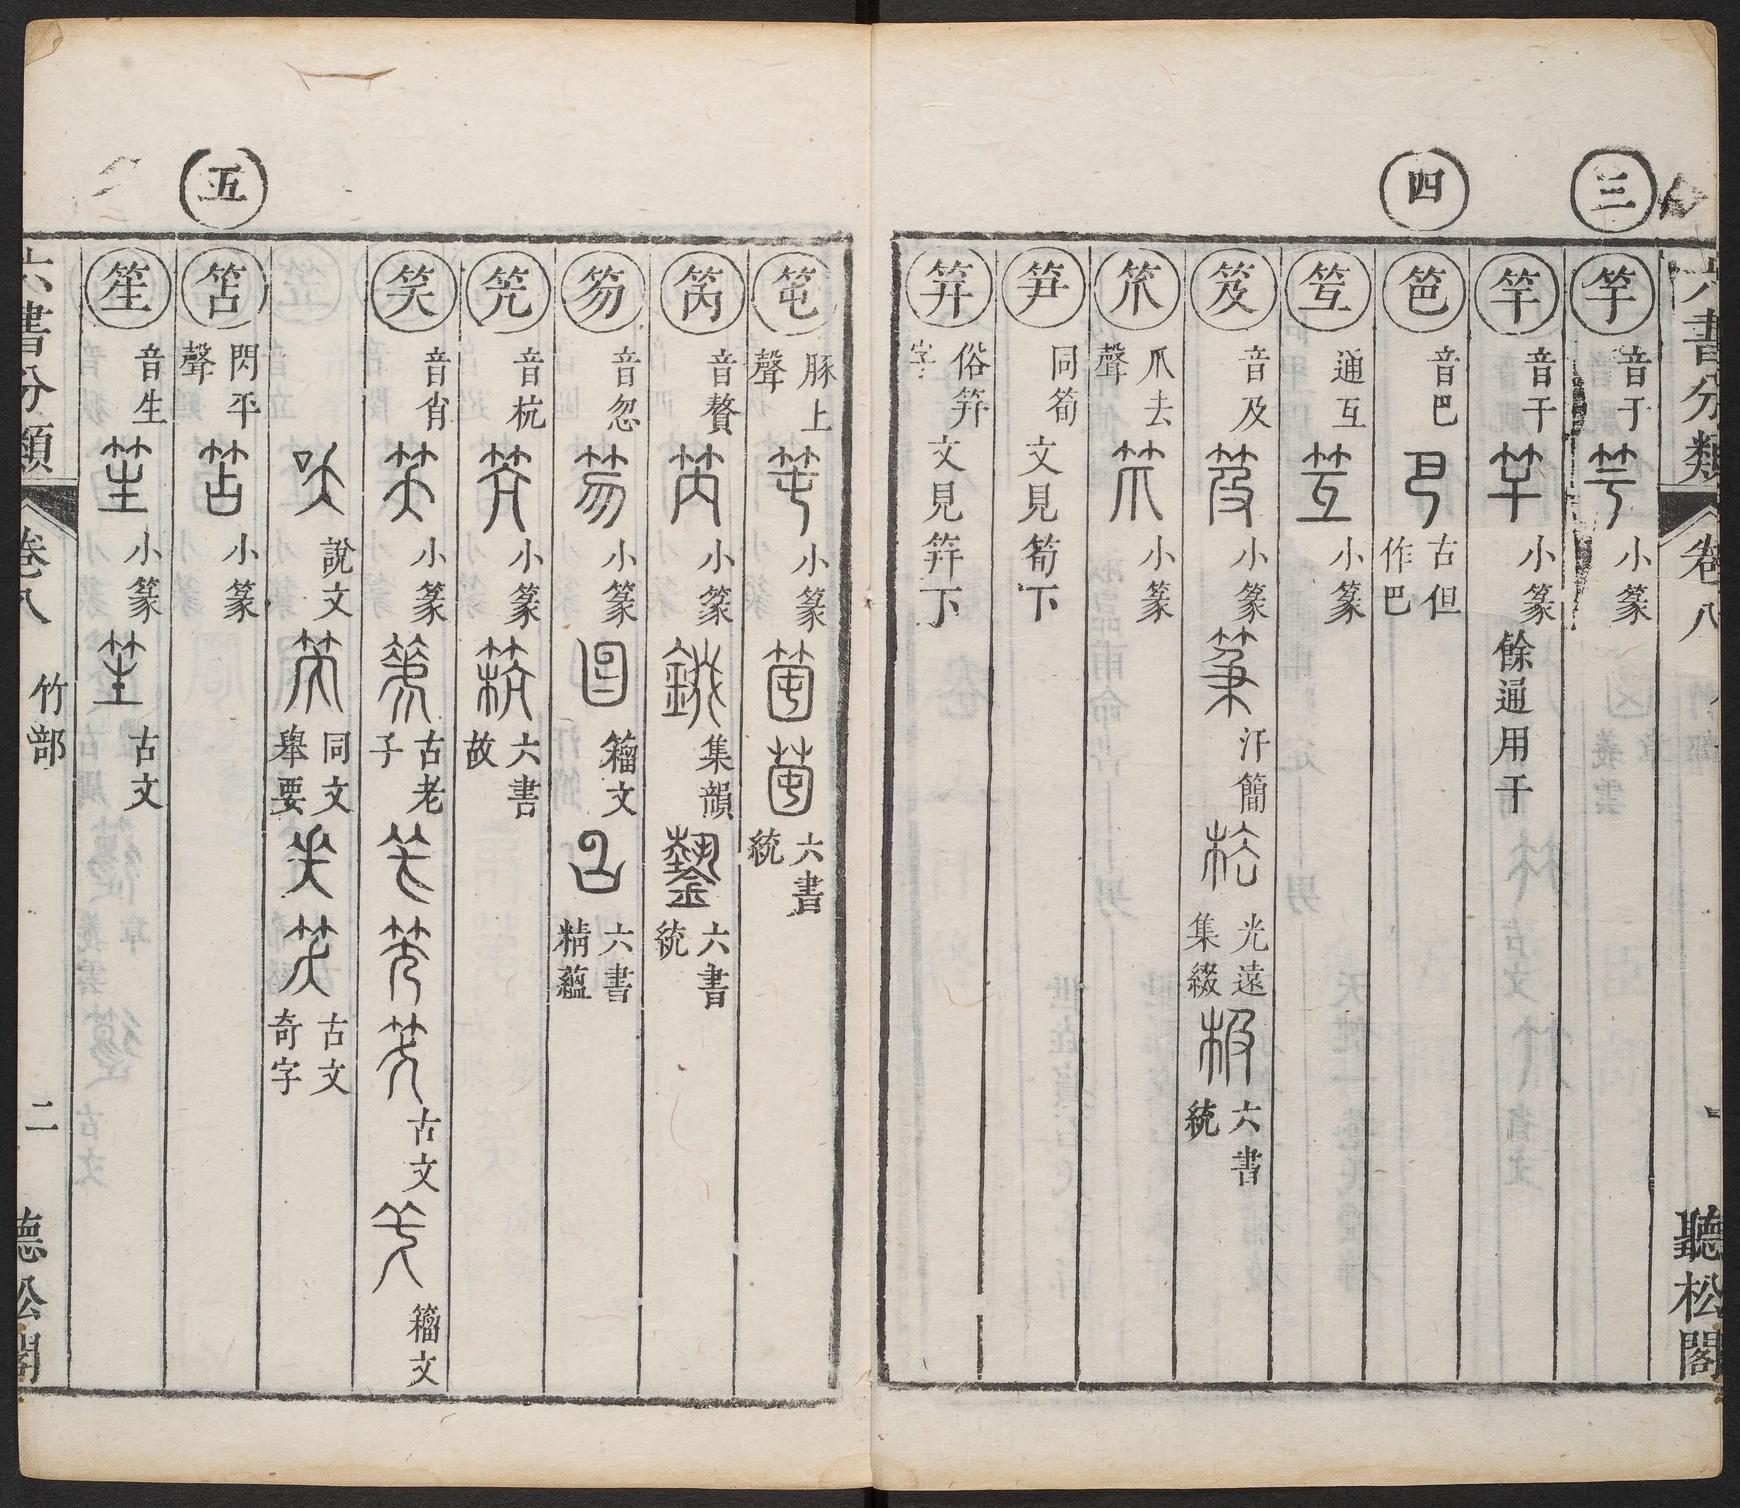 六書分類 卷八 聽松閣
三
竽 音于 小篆
竿 音干 小篆 餘通用干
四
笆 音巴 古但作巴
笠 通互 小篆
笈 音及 小篆 汗簡 光遠集綴 六書統
笊 爪去聲 小篆
笋 同筍 文見筍下
笲 俗筭字 文見筭下
笔 豚上聲 小篆 六書統
笍 音贅 小篆 集韻 六書統
笏 音忽 小篆 籀文 六書精蘊
笐 音杭 小篆 六書故
笑 音肖 小篆 古老子 古文 籀文
說文 同文舉要 古文奇字
五
笘 閃平聲 小篆
笙 音生 小篆 古文
六書分類 卷八 竹部 二 聽松閣